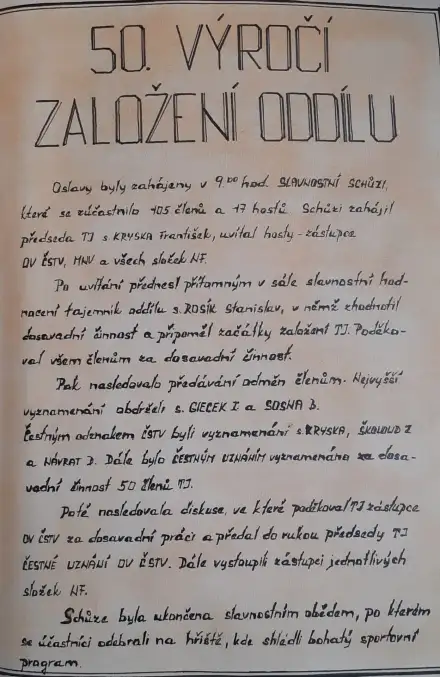 50. VÝROČÍ
ZALOŽENÍ ODDÍLU
Oslavy byly zahájeny v 9.00 hod. SLAVNOSTNÍ SCHŮZÍ,
které se zúčastnilo 105 členů a 17 hostů. Schůzi zahájil
předseda TJ s KRYSKA František, uvítal hosty - zástupce
OV ČSTV, MNV a všech složek NF.
Po uvítání přednesl přítomným v sále slavnostní hod-
nocení tajemník oddílu s. ROSÍK Stanislav, v němž zhodnotil
dosavadní činnost a připoměl začátky založení TJ. Poděko-
val všem členům za dosavadní činnost.
Pak nasledovalo předávání odměn členům. Nejvyšší
vyznamenání obdrželi s. GIECEK I a SOSNA B.
Čestným odznakem ČSTV byli vyznamenání s. KRYSKA, ŠKOLOUD Z
a NÁVRAT D. Dále bylo ČESTNÝM UZNÁNÍM vyznamenáno za dosa-
vadní činnost 50 členů TJ.
Poté nasledovala diskuse, ve které poděkoval TJ zástupce
OV ČSTV za dosavadní práci a předal do rukou předsedy TJ
ČESTNÉ UZNÁNÍ OV ČSTV. Dále vystoupili zástupci jednotlivých
složek NF.
Schůze byla ukončena slavnostním obědem, po kterém
se účastníci odebrali na hřiště, kde shlédli bohatý sportovní
program.